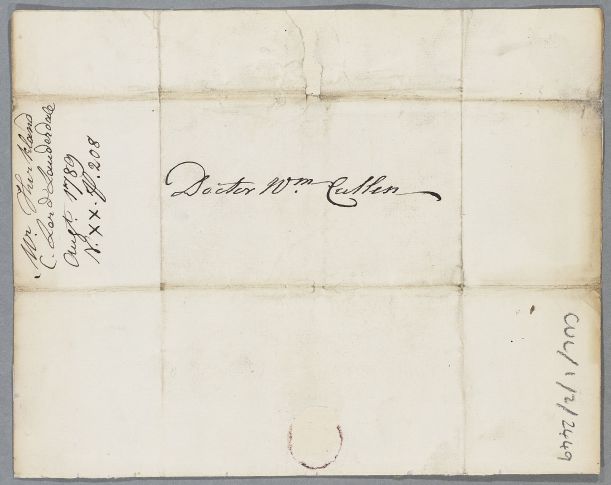 Doctor Wm Cullen
Mr Thirkland
C. Lord Lauderdale
Augt 1789
V. XX. P. 208
CUL/1/2/2449